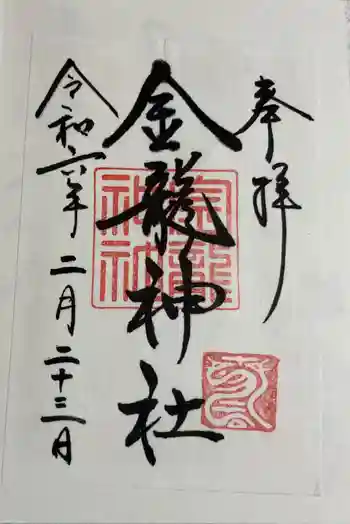 奉拝
金龍神社
令和六年二月二十三日
金龍神社